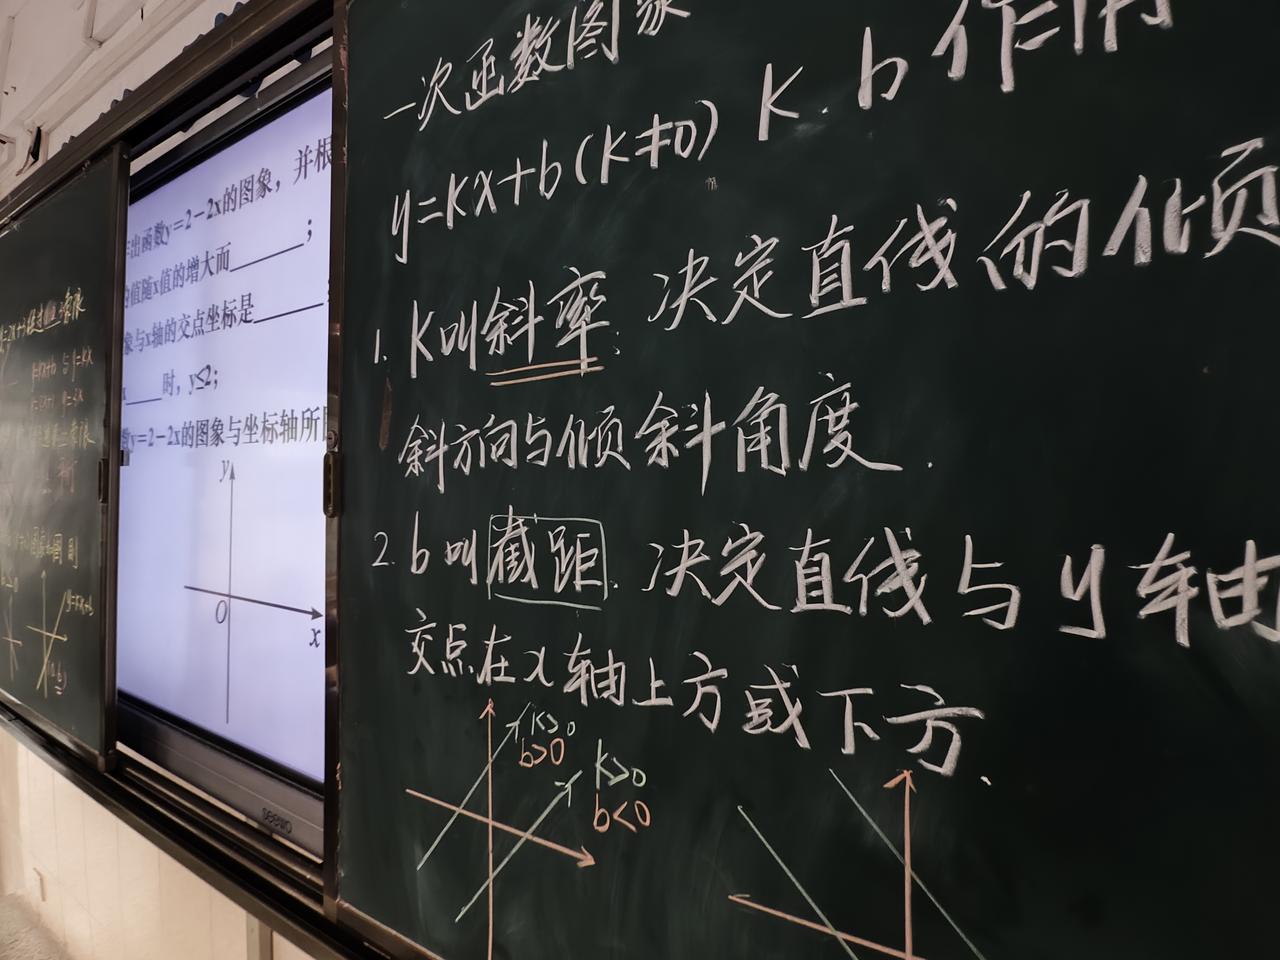 一次函数图象
y=kx+b(k≠0) k.b作用
1. k叫斜率. 决定直线的倾
斜方向与倾斜角度.
2. b叫截距. 决定直线与y轴
交点在x轴上方或下方.
k>0
b>0
k>0
b<0
出函数y=2-2x的图象，并根
值随x值的增大而____；
象与x轴的交点坐标是____
x____时，y≤2；
数y=2-2x的图象与坐标轴所
y
O
x
seewo
y=kx+b